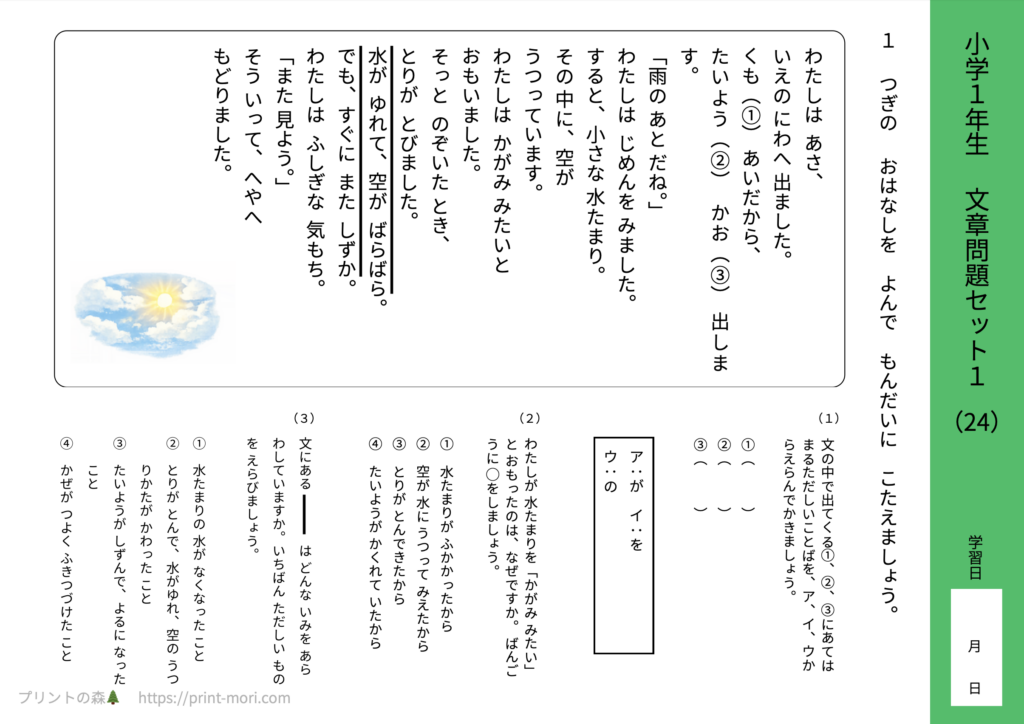 小学1年生 文章問題セット1 (24)
学習日
月 日
1 つぎの おはなしを よんで もんだいに こたえましょう。
わたしは あさ、
いえの にわへ 出ました。
くも (①) あいだから、
たいよう (②) かお (③) 出しま
す。
「雨の あと だね。」
わたしは じめんを みました。
すると、小さな 水たまり。
その 中に、空が
うつって います。
わたしは かがみ みたいと
おもいました。
そっと のぞいた とき、
とりが とびました。
水が ゆれて、空が ばらばら。
でも、すぐに また しずか。
わたしは ふしぎな 気もち。
「また 見よう。」
そう いって、へやへ
もどりました。
(1) 文の 中で 出て くる①、②、③に あては
まる ただしい ことばを、ア、イ、ウ か
ら えらんで かきましょう。
① ( )
② ( )
③ ( )
ア:が イ:を
ウ:の
(2) わたしが 水たまりを「かがみ みたい」
と おもった のは、なぜですか。 ばんご
うに○を しましょう。
① 水たまりが ふかかったから
② 空が 水に うつって みえたから
③ とりが とんできたから
④ たいようが かくれて いたから
(3) 文に ある ━━ は どんな いみを あら
わして いますか。いちばん ただしい もの
を えらびましょう。
① 水たまりの 水が なくなった こと
② とりが とんで、水が ゆれ、空の うつ
りかたが かわった こと
③ たいようが しずんで、よるに なった
こと
④ かぜが つよく ふきつづけた こと
プリントの森 https://print-mori.com